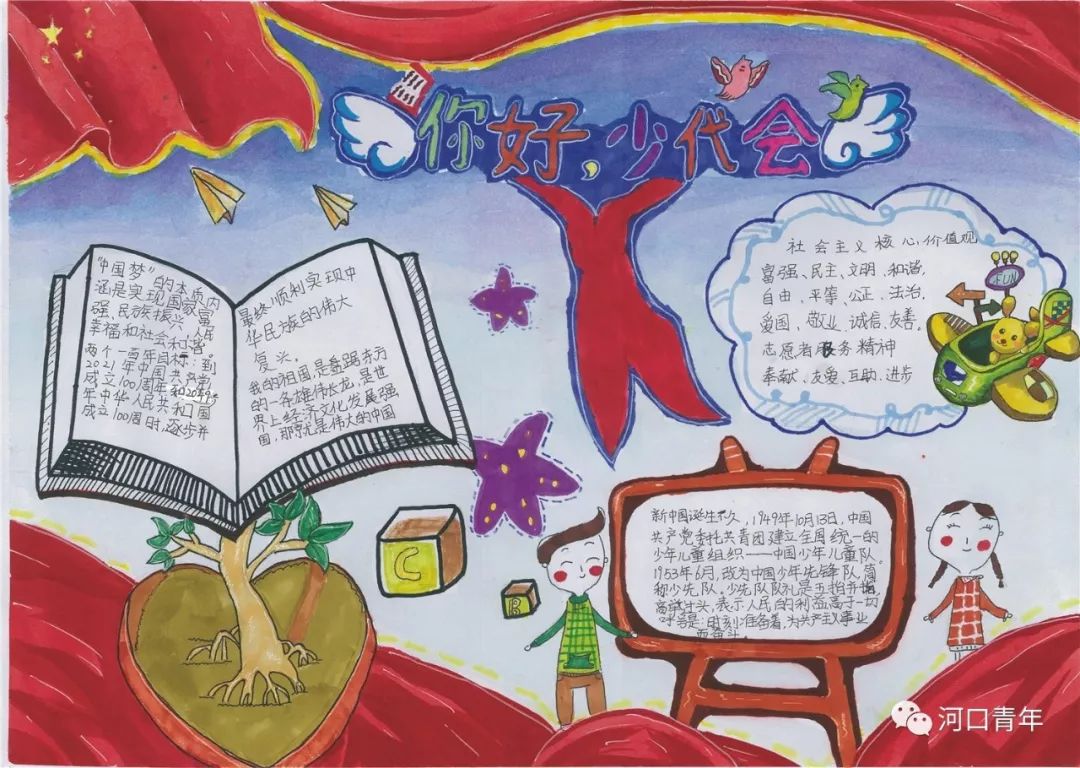 你好,少代会
"中国梦"的本质内
涵是实现国家富
强、民族振兴、人民
幸福和社会和谐。
两个一百年目标:到
2021年中国共产党
成立100周年和2049
年中华人民共和国
成立100周时,逐步并
最终顺利实现中
华民族的伟大
复兴。
我的祖国,是盘踞东方
的一条雄伟长龙,是世
界上经济文化发展强
国,那就是伟大的中国
社会主义核心价值观
富强、民主、文明、和谐,
自由、平等、公正、法治,
爱国、敬业、诚信、友善。
志愿者服务精神
奉献、友爱、互助、进步
FUN
C
B
新中国诞生不久,1949年10月13日,中国
共产党委托共青团建立全国统一的
少年儿童组织——中国少年儿童队
1953年6月,改为中国少年先锋队,简
称少先队。少先队队礼是五指并拢,
高举过头,表示人民的利益高于一切
呼号是:时刻准备着,为共产主义事业
而奋斗。
河口青年